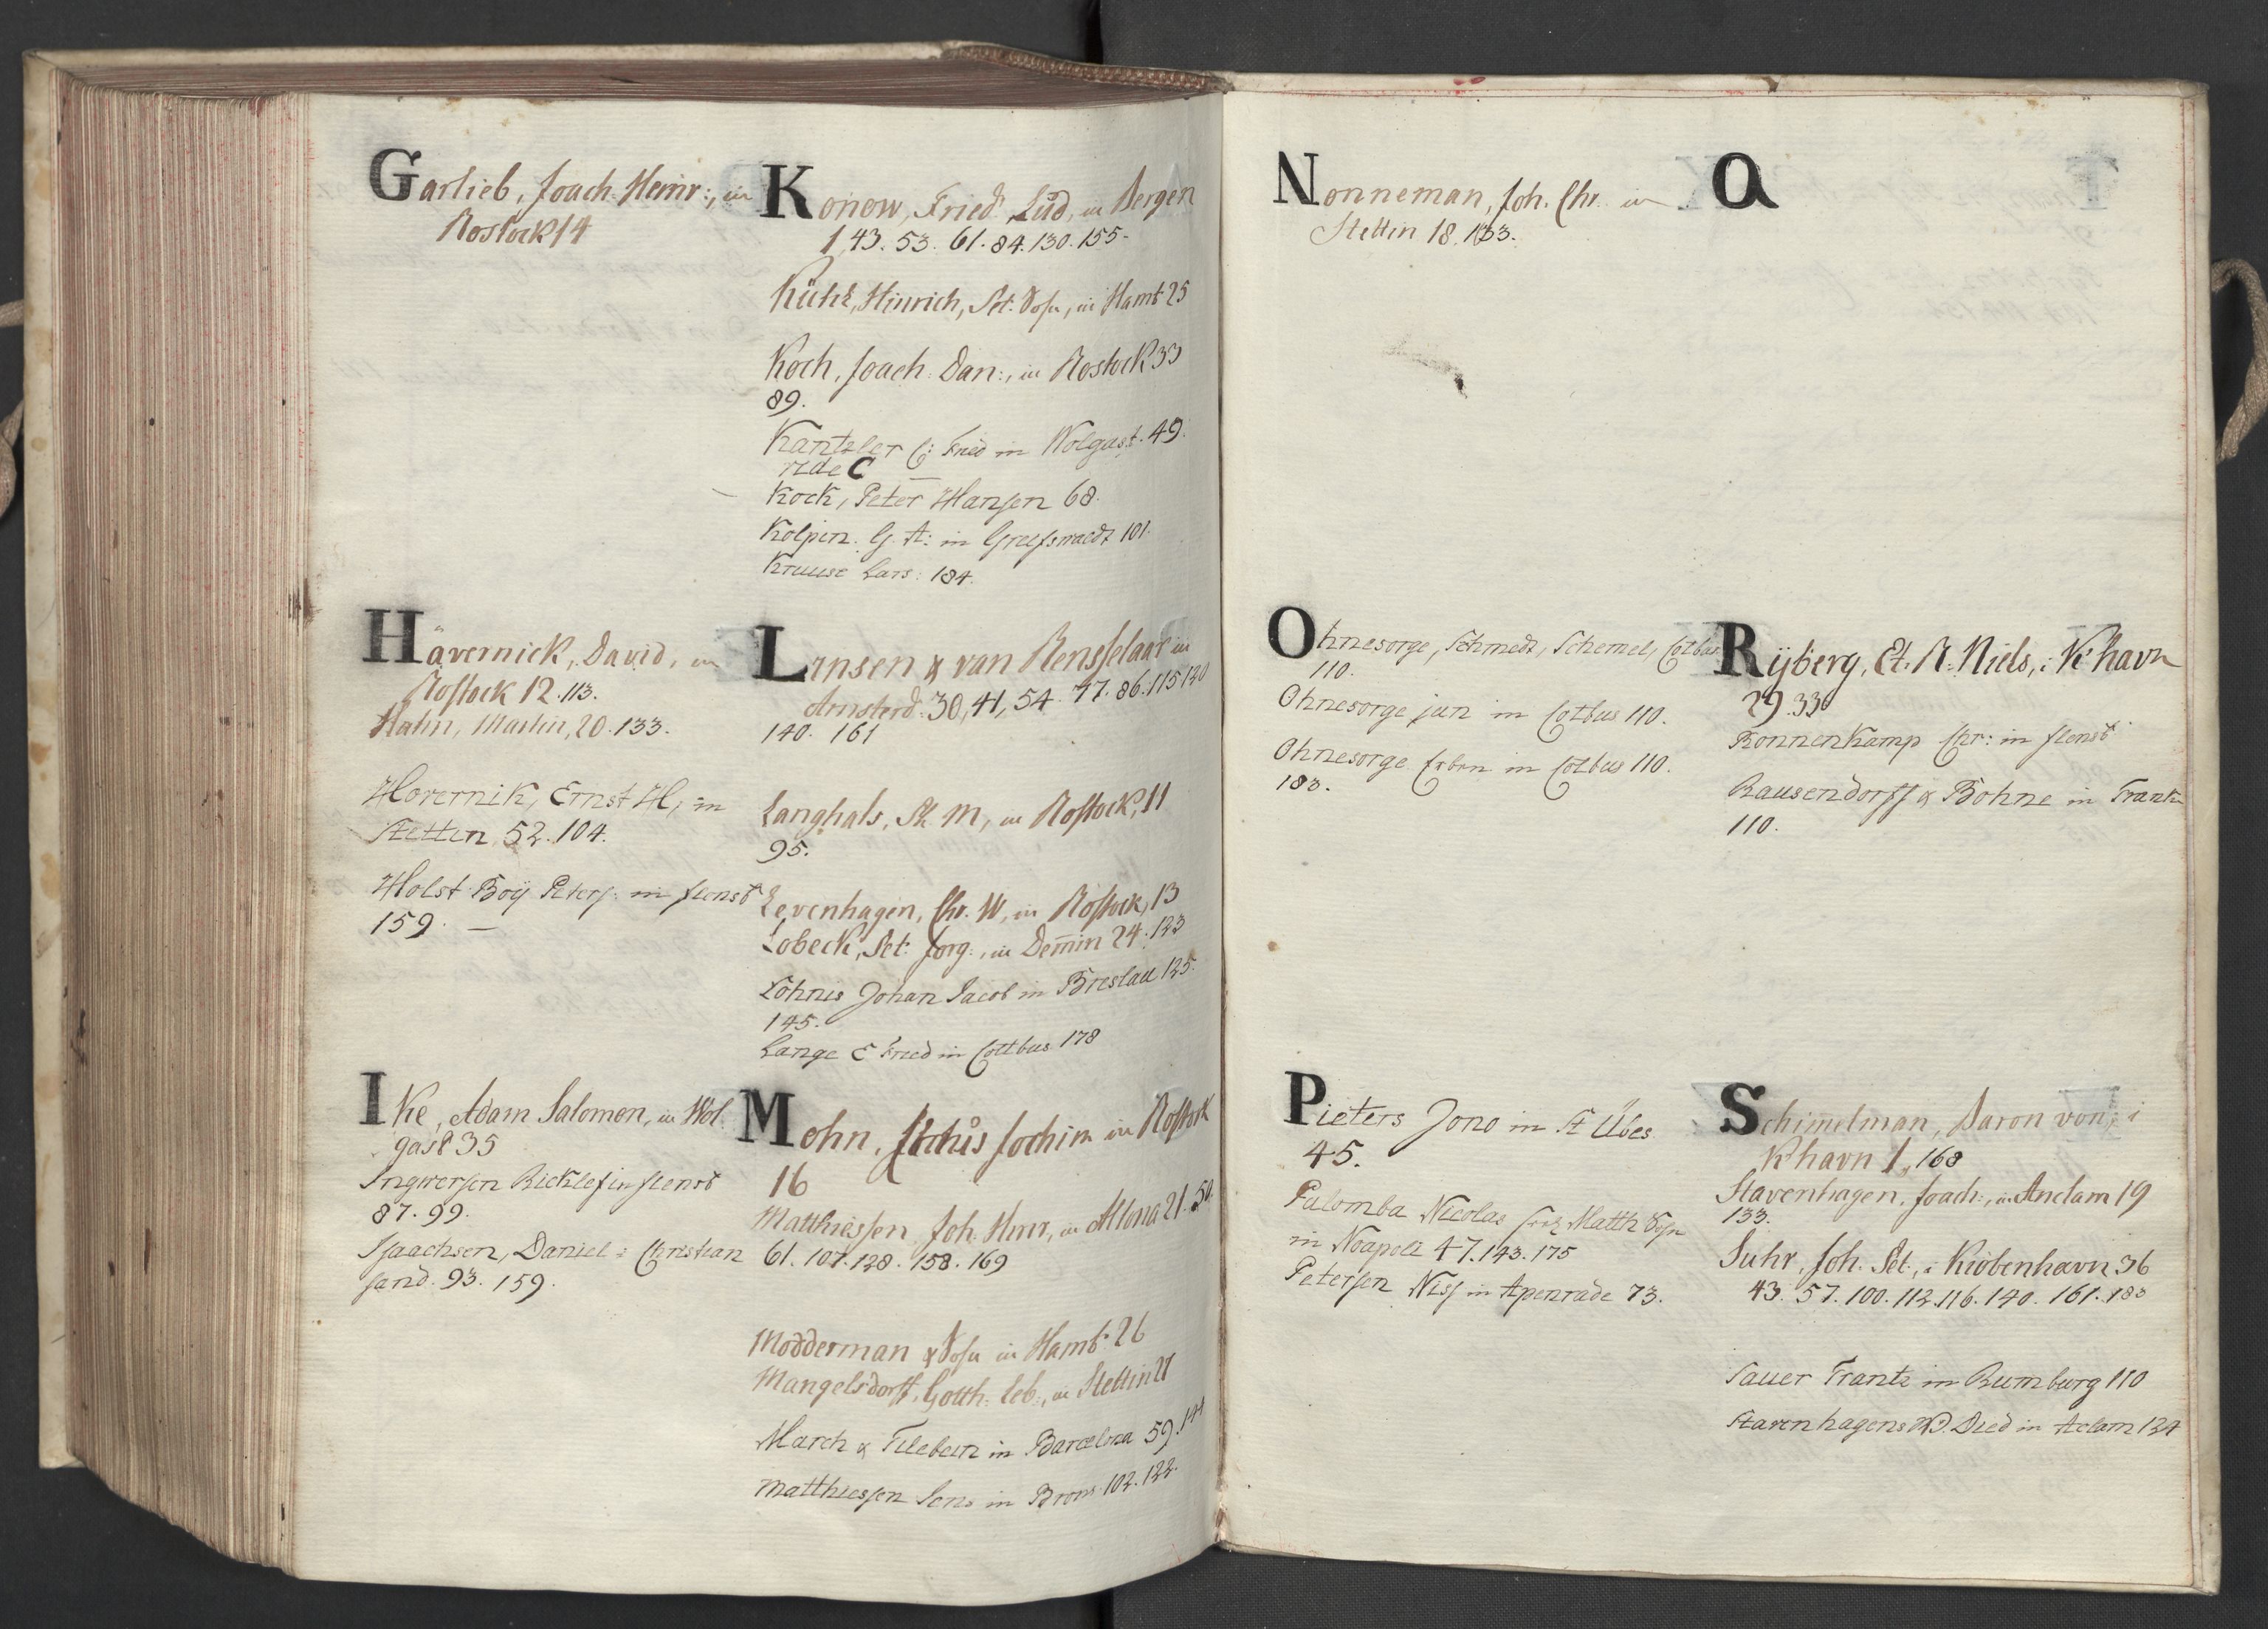 Garlieb, Joach. Heinr:, in
Rostock 14
Hävernick, David, in
Rostock 12. 113.
Hahn, Martin, 20. 133.
Hovernik, Ernst H, in
Stettin 52. 104.
Holst Boÿ Peters: in flensb
159. —
IKe, Adam Salomon, in Wol.
gast 35
Ingwersen Ricklef in flensb
87. 99.
Isaachsen, Daniel : Christian
sand. 93. 159.
Konow, Fried. Lud, in Bergen
1, 43. 53. 61. 84. 130. 155.
Kühl, Hinrich, Pet. Sohn, in Hamb 25
Koch, Joach. Dan:, in Rostock 33
89.
Kantzler C: Fried in Wolgast. 49.
vide C
Kock, Peter Hansen 68.
Kolpin. G. A: in Greifswaldt 101.
Kruuse Lars: 184.
Lensen & van Rensselaar in
Amsterd. 30, 41, 54. 77. 86. 115 120
140. 161
Langhals, M, in Rostock, 11
95.
Levenhagen, Chr. W, in Rostock, 13
Lobeck, Pet: Jorg:, in Demin 24. 123
Lohnis Johan Jacob in Breslau 125.
145.
Lange C Fried in Cottbus 178
Mohn, Jochim in Rostock
16
Matthiessen Joh. Hinr, in Altona 21. 50.
61. 107. 128. 158. 169
Modderman & Sohn in Hamb. 26
Mangelsdorff, Gotth. Leb:, in Stettin 27
March & Tilebein in Barcelona 59. 144
Matthiessen Jens in Brons 102. 122.
Nonneman, Joh. Chr. in
Stettin 18. 133.
Ohnesorge, Schmedt, Schemel, Cotbus
110.
Ohnesorge jun in Cotbus 110.
Ohnesorge Erben in Cotbus 110.
183.
Pieters Jono in St Übes
45.
Palomba Nicolas Matth Sohn
in Noapoli 47. 143. 175
Petersen Niss in Apenrade 73.
Q
Rÿberg, Et. R. Niels, i K.havn
29. 330
Ronnenkamp Chr: in flensb
Rausendorff & Bohne in Frank
110.
Schimelman, Baron von, i
K.havn 1, 168
Stavenhagen, Joach:, in Anclam 19
133.
Suhr, Joh. Pet., i Kiöbenhavn 36
43. 57. 100. 112. 116. 140. 161. 183
Sauer Frantz in Rumburg 110
Stavenhagens in Aclam 124